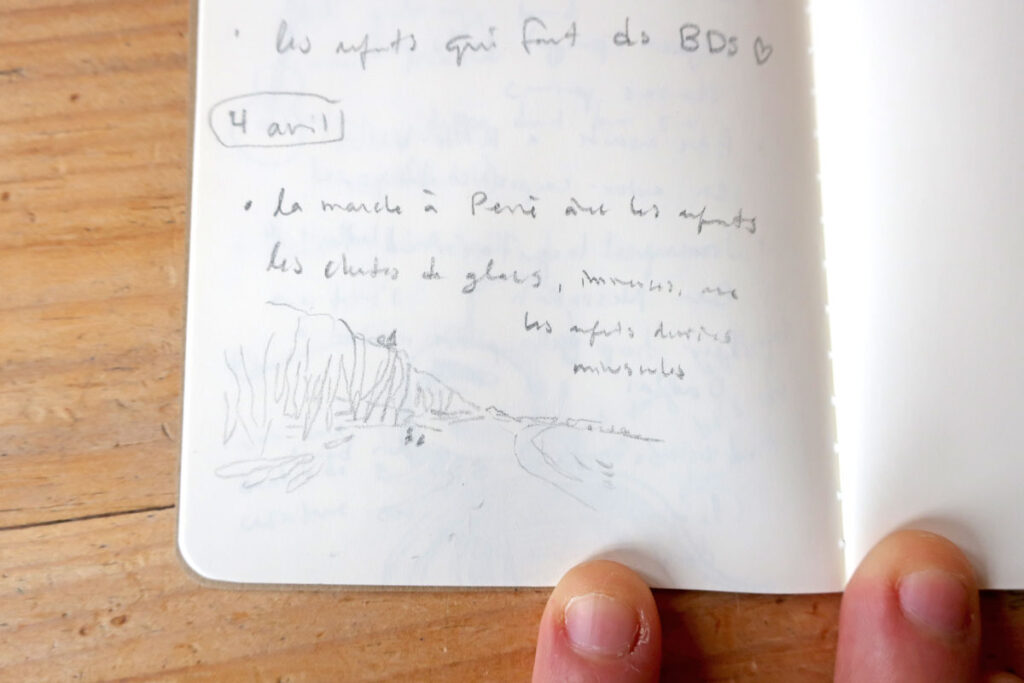 • les enfants qui font des BDs ♡
4 avril
• la marche à Percé avec les enfants
les chutes de glaces, immenses,
les enfants devenus
minuscules